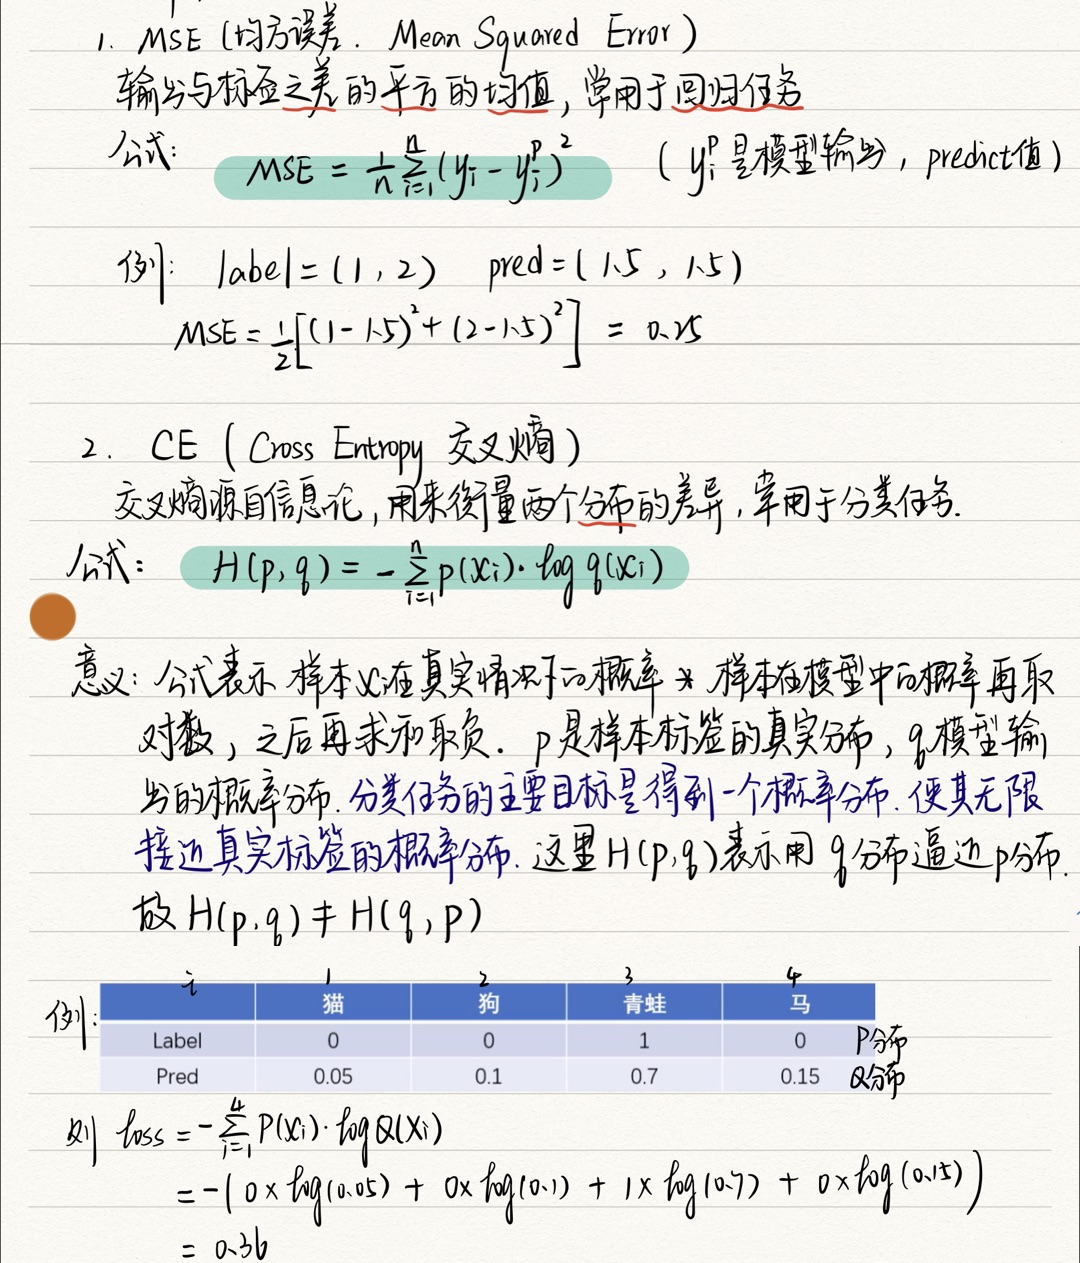 1. MSE (均方误差. Mean Squared Error)
输出与标签之差的平方的均值, 常用于回归任务
公式: MSE = 1/n Σ_{i=1}^{n} (y_i - y_i^p)^2 ( y_i^p 是模型输出, predict值)
例: label = (1, 2) pred = (1.5, 1.5)
MSE = 1/2 [(1-1.5)^2 + (2-1.5)^2] = 0.25
2. CE ( Cross Entropy 交叉熵)
交叉熵源自信息论, 用来衡量两个分布的差异, 常用于分类任务.
公式: H(p, q) = - Σ_{i=1}^{n} p(x_i)· log q(x_i)
意义: 公式表示 样本x_i在真实情况下的概率 * 样本在模型中的概率再取
对数, 之后再求和取负. p是样本标签的真实分布, q模型输
出的概率分布. 分类任务的主要目标是得到一个概率分布. 使其无限
接近真实标签的概率分布. 这里H(p,q)表示用 q分布逼近p分布.
故 H(p,q) ≠ H(q, p)
i 1 2 3 4
例: 猫 狗 青蛙 马
Label 0 0 1 0 P分布
Pred 0.05 0.1 0.7 0.15 Q分布
则 loss = - Σ_{i=1}^{4} P(x_i)· log Q(x_i)
= -( 0 × log(0.05) + 0× log(0.1) + 1× log(0.7) + 0× log(0.15) )
= 0.36